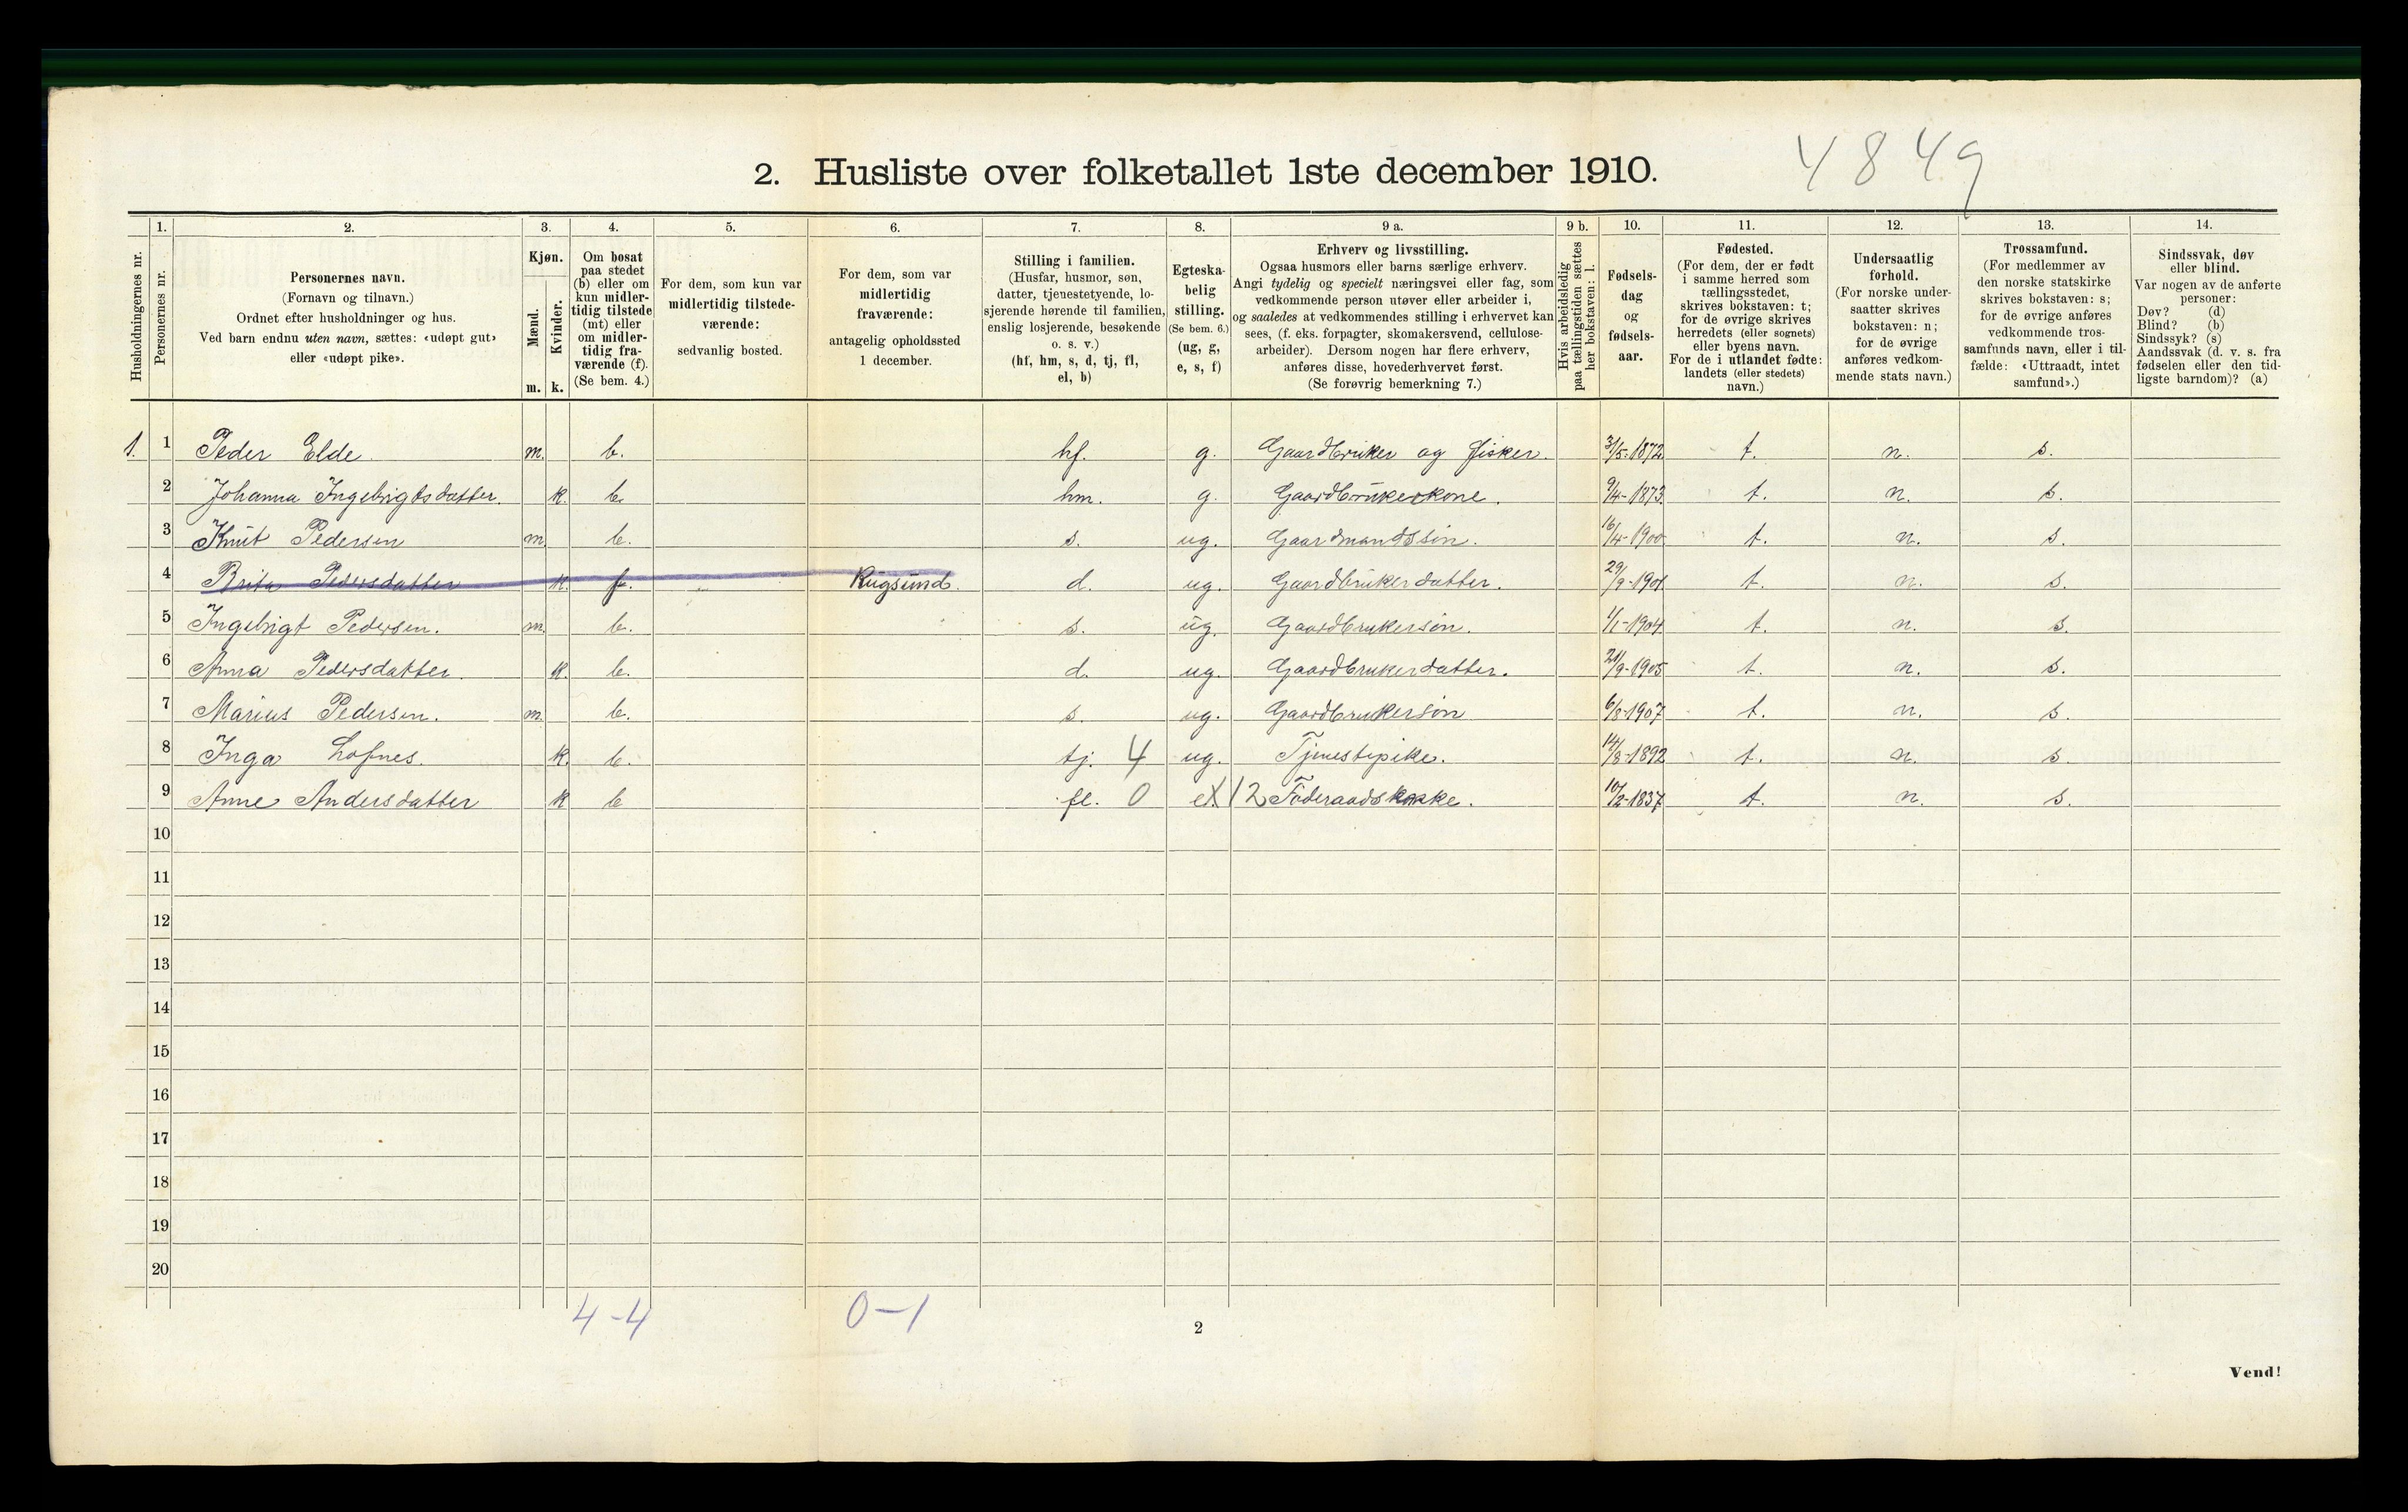 4849
2. Husliste over folketallet 1ste december 1910.
Husholdningernes nr.
1. Personernes nr.
2. Personernes navn. (Fornavn og tilnavn.) Ordnet efter husholdninger og hus. Ved barn endnu uten navn, sættes: «udøpt gut» eller «udøpt pike».
3. Kjøn. Mænd. m. Kvinder. k.
4. Om bosat paa stedet (b) eller om kun midlertidig tilstede (mt) eller om midlertidig fraværende (f). (Se bem. 4.)
5. For dem, som kun var midlertidig tilstedeværende: sedvanlig bosted.
6. For dem, som var midlertidig fraværende: antagelig opholdssted 1 december.
7. Stilling i familien. (Husfar, husmor, søn, datter, tjenestetyende, losjerende hørende til familien, enslig losjerende, besøkende o. s. v.) (hf, hm, s, d, tj, fl, el, b)
8. Egteskabelig stilling. (Se bem. 6.) (ug, g, e, s, f)
9 a. Erhverv og livsstilling. Ogsaa husmors eller barns særlige erhverv. Angi tydelig og specielt næringsvei eller fag, som vedkommende person utøver eller arbeider i, og saaledes at vedkommendes stilling i erhvervet kan sees, (f. eks. forpagter, skomakersvend, cellulosearbeider). Dersom nogen har flere erhverv, anføres disse, hovederhvervet først. (Se forøvrig bemerkning 7.)
9 b. Hvis arbeidsledig paa tællingstiden sættes her bokstaven: l.
10. Fødselsdag og fødselsaar.
11. Fødested. (For dem, der er født i samme herred som tællingsstedet, skrives bokstaven: t; for de øvrige skrives herredets (eller sognets) eller byens navn. For de i utlandet fødte: landets (eller stedets) navn.)
12. Undersaatlig forhold. (For norske undersaatter skrives bokstaven: n; for de øvrige anføres vedkommende stats navn.)
13. Trossamfund. (For medlemmer av den norske statskirke skrives bokstaven: s; for de øvrige anføres vedkommende trossamfunds navn, eller i tilfælde: «Uttraadt, intet samfund».)
14. Sindssvak, døv eller blind. Var nogen av de anførte personer: Døv? (d) Blind? (b) Sindssyk? (s) Aandssvak (d. v. s. fra fødselen eller den tidligste barndom)? (a)
1. 1 Peder Elde m. b. hf. g. Gaardbruker og fisker. 3/5-1872 t. n. s.
2 Johanna Ingebrigtsdatter. k. b. hm. g. Gaardbrukerkone. 9/4-1873 t. n. s.
3 Knut Pedersen m. b. s. ug. Gaardmandssøn. 16/4-1900 t. n. s.
4 Brita Pedersdatter k. f. Rugsund. d. ug. Gaardbrukerdatter. 29/9-1901 t. n. s.
5 Ingebrigt Pedersen. m. b. s. ug. Gaardbrukersøn. 1/1-1904 t. n. s.
6 Anna Pedersdatter. k. b. d. ug. Gaardbrukerdatter. 21/9-1905 t. n. s.
7 Marius Pedersen. m. b. s. ug. Gaardbrukersøn 6/8-1907 t. n. s.
8 Inga Lofnes. k. b. tj. 4 ug. Tjenestepike. 14/8-1892 t. n. s.
9 Anne Andersdatter k b fl. 0 12 10/2-1837 t. n. s.
10
11
12
13
14
15
16
17
18
19
20
4-4 0-1
2
Vend!